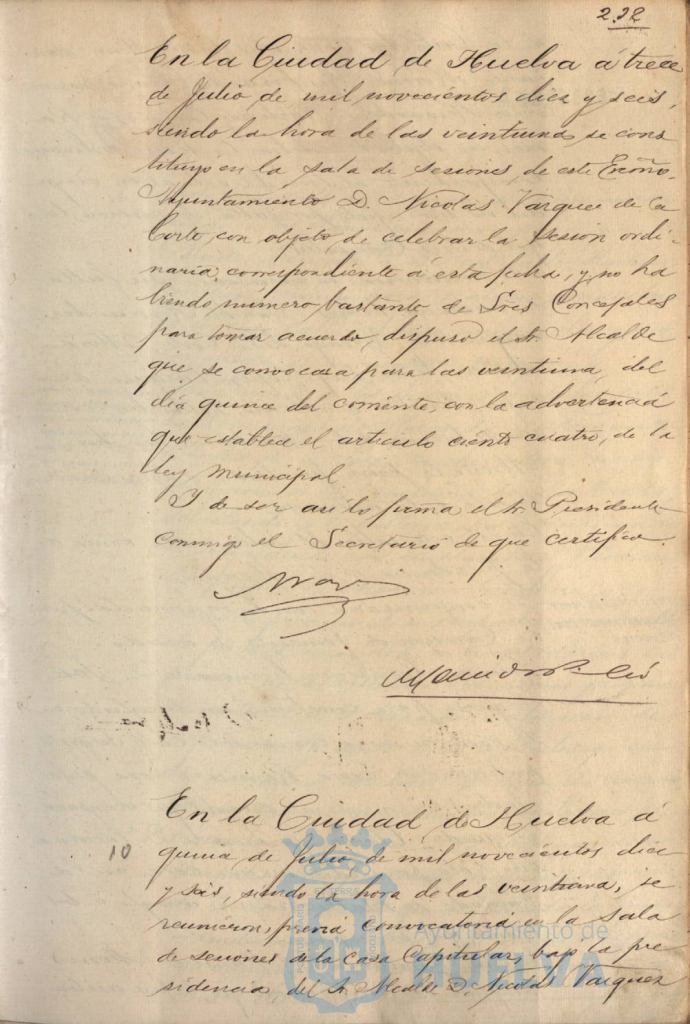 232
En la Ciudad de Huelva á trece
de Julio de mil novecientos diez y seis,
siendo la hora de las veintiuna se cons
tituyó en la sala de sesiones de este Excmo.
Ayuntamiento D. Nicolas Vazquez de la
Corte con objeto de celebrar la sesion ordi-
naria correspondiente á esta fecha, y no ha
biendo número bastante de Sres Concejales
para tomar acuerdo, dispuso el Sr. Alcalde
que se convocara para las veintiuna del
dia quince del corriente, con la advertencia
que establece el articulo ciento cuatro, de la
ley municipal
Y de ser asi lo firma el Sr. Presidente
conmigo el Secretario de que certifico.
En la Ciudad de Huelva á
10
quince de Julio de mil novecientos diez
y seis, siendo la hora de las veintiuna, se
reunieron, previa convocatoria en la sala
de sesiones de la Casa Capitular, bajo la pre
sidencia del Sr. Alcalde D. Nicolas Vazquez
Ayuntamiento de
HUELVA